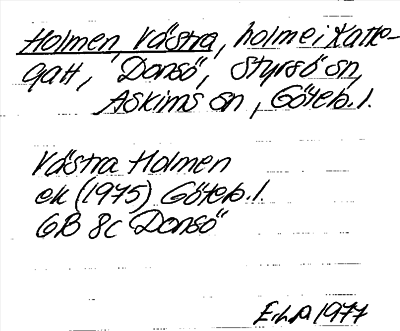 Holmen, Västra, holme i Katte-
gatt, Donsö, Styrsö sn,
Askims sn, Göteb. l.
Västra Holmen
ek (1975) Göteb. l.
6B 8c Donsö
1977